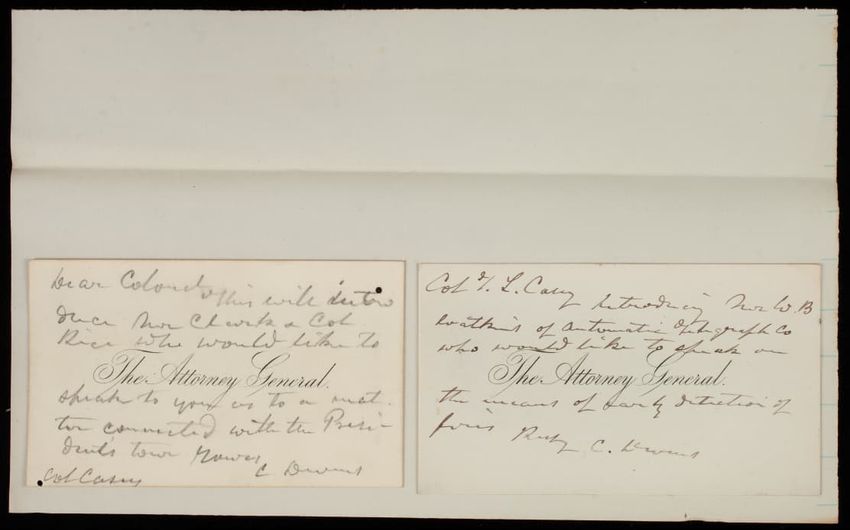 Dear Colonel, This will intro
duce Mr Clark & Col
Rice who would like to
The Attorney General.
speak to you as to a mat-
ter connected with the Presi-
dent's tour Yours
C Devens
Col Casey
Col T. L. Casey Introducing Mr W. B
Watkins of Automatic Telegraph Co
who would like to speak on
The Attorney General.
the means of early detection of
fires C. Devens